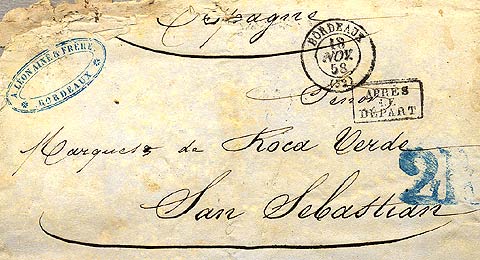 Espagne
A. LEON AINÉ & FRÈRE
BORDEAUX
BORDEAUX
18
NOV.
58
(32)
APRÈS
LE
DÉPART
Señor
Marques de Roca Verde
2R
San Sebastian